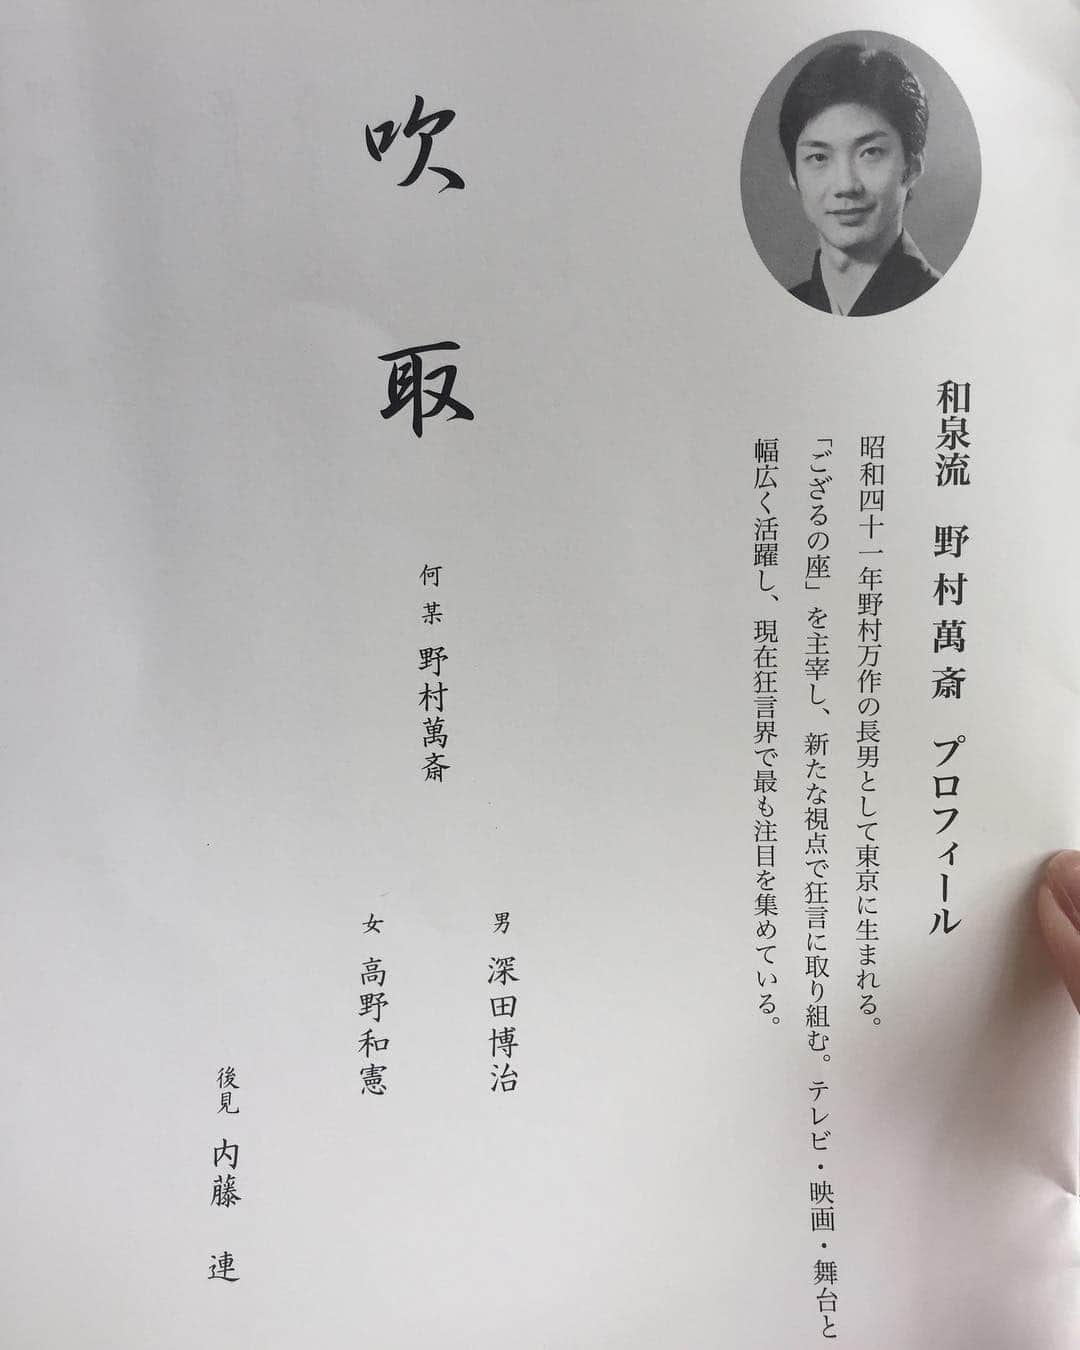 和泉流 野村萬斎 プロフィール
昭和四十一年野村万作の長男として東京に生まれる。
「ござるの座」を主宰し、新たな視点で狂言に取り組む。テレビ・映画・舞台と
幅広く活躍し、現在狂言界で最も注目を集めている。
吹取
何某 野村萬斎
男 深田博治
女 高野和憲
後見 内藤 連